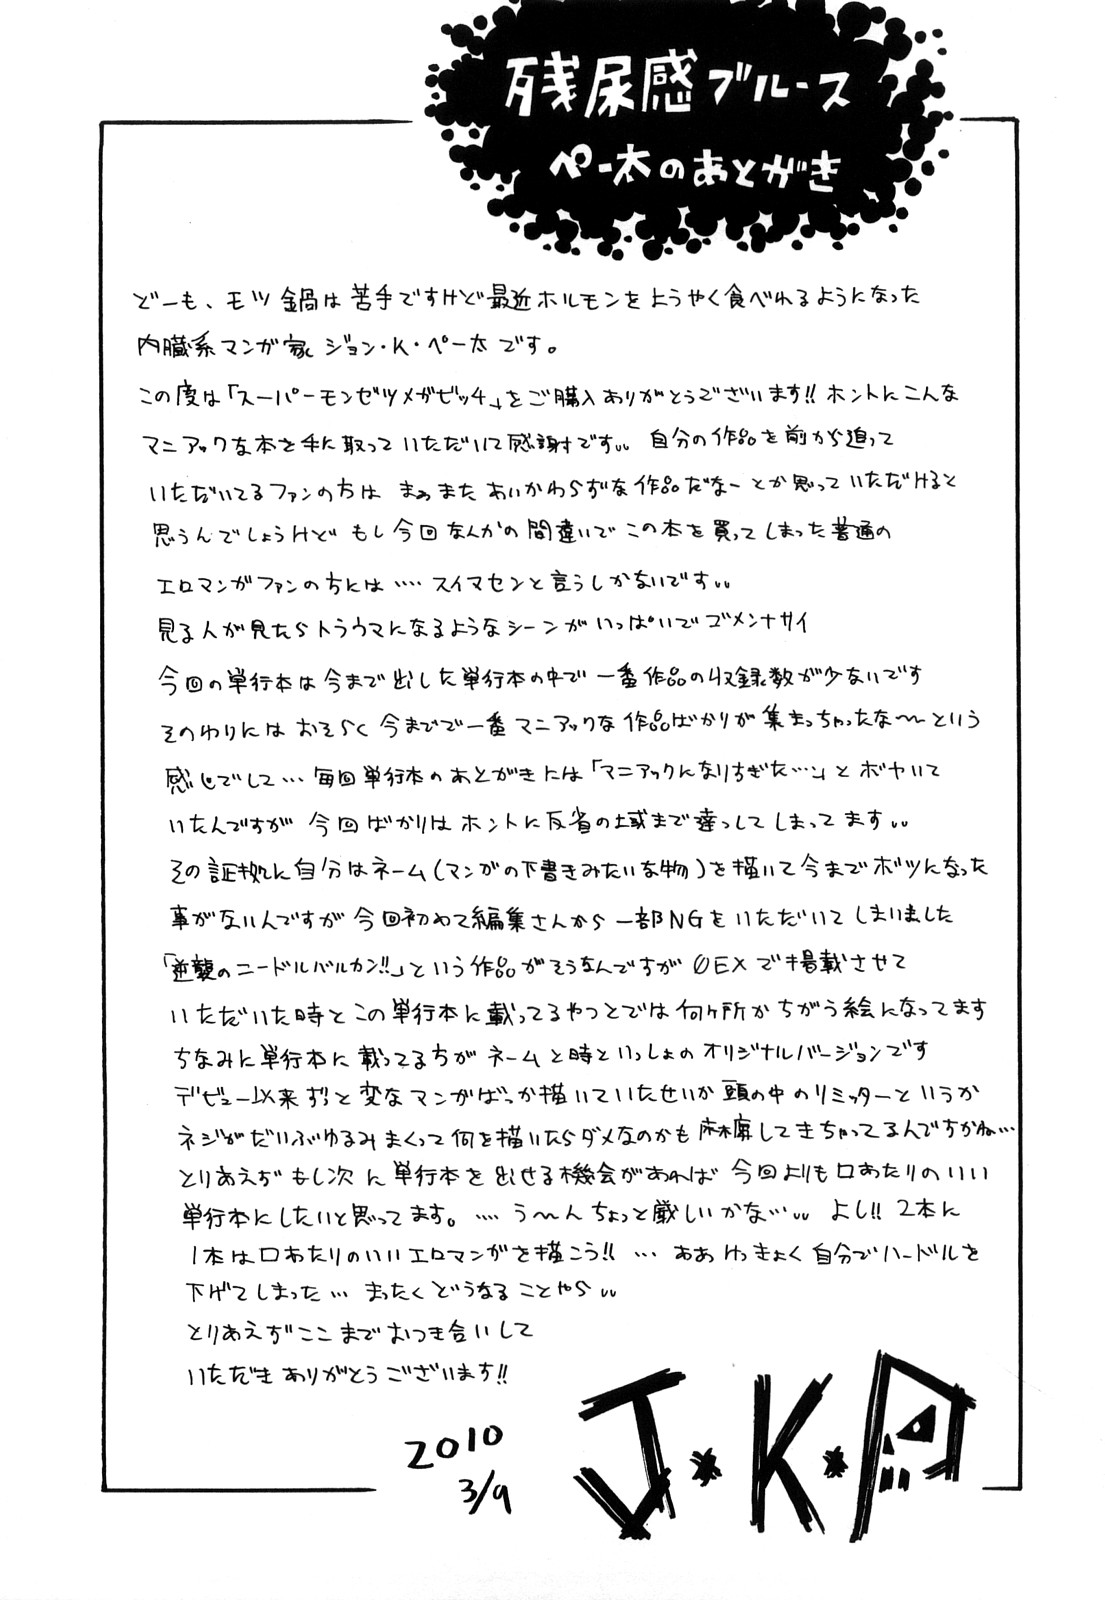 残尿感ブルース
ペー太のあとがき
どーも、モツ鍋は苦手ですけど最近ホルモンをようやく食べれるようになった
内臓系マンガ家 ジョン・K・ペー太です。
この度は「スーパーモンゼツメガゼッチ」をご購入ありがとうございます!!ホントにこんな
マニアックな本を手に取っていただいて感謝です〟 自分の作品を前から追って
いただいてるファンの方は まぁまた あいかわらずな作品だなーとか思っていただけると
思うんでしょうけど もし今回なんかの間違いでこの本を買ってしまった普通の
エロマンガファンの方には‥‥ スイマセンと言うしかないです〟
見る人が見たらトラウマになるようなシーンがいっぱいでゴメンナサイ
今回の単行本は今まで出した単行本の中で一番作品の収録数が少ないです
そのわりにはおそらく今までで一番マニアックな作品ばかりが集まっちゃったな〜という
感じでして… 毎回単行本のあとがきには「マニアックになりすぎた…」とボヤいて
いたんですが 今回ばかりはホントに反省の域まで達っしてしまってます〟
その証拠に自分はネーム(マンガの下書きみたいな物)を描いて今までボツになった
事がないんですが今回初めて編集さんから一部NGをいただいてしまいました
「逆襲のニードルバルカン!!」という作品がそうなんですが 0EXで掲載させて
いただいた時とこの単行本に載ってるやつとでは何ヶ所かちがう絵になってます
ちなみに単行本に載ってる方がネームと時といっしょのオリジナルバージョンです
デビュー以来ずっと変なマンガばっか描いていたせいか頭の中のリミッターというか
ネジがだいぶゆるみまくって何を描いたらダメなのかも麻痺してきちゃってるんですかね…
とりあえずもし次に単行本を出せる機会があれば 今回よりも口あたりのいい
単行本にしたいと思ってます。‥‥ う〜んちょっと厳しいかな…〟 よし!! 2本に
1本は口あたりのいいエロマンガを描こう!! … ああけっきょく自分でハードルを
下げてしまった… まったくどうなることやら〟
とりあえずここまでおつき合いして
いただきありがとうございます!!
2010
3/9
J*K*P